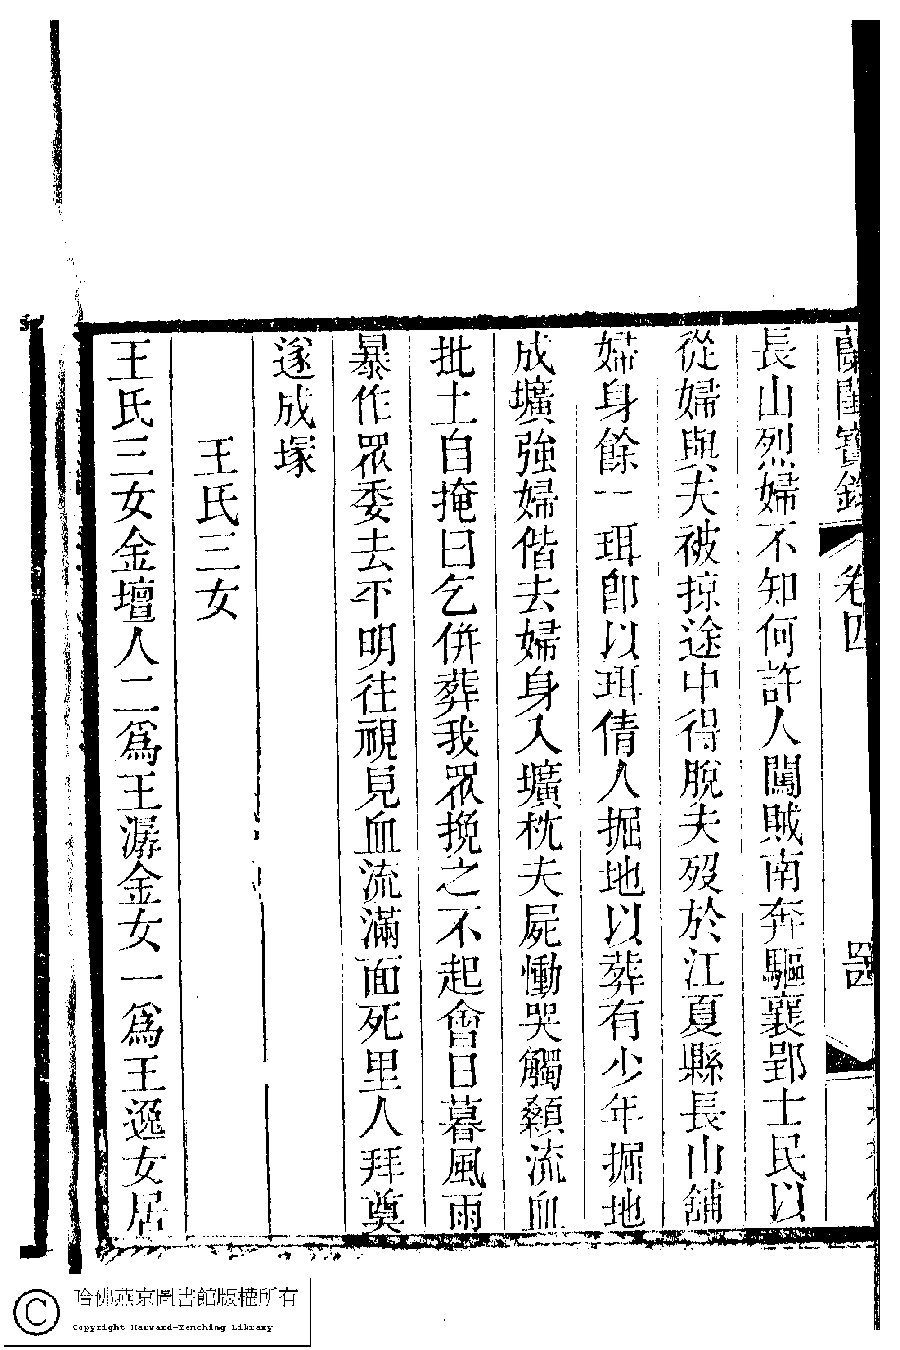 蘭閨寶錄 卷四
長山烈婦不知何許人闖賊南奔驅襄郢士民以
從婦與夫被掠途中得脫夫歿於江夏縣長山舖
婦身餘一珥卽以珥倩人掘地以葬有少年掘地
成壙強婦偕去婦身入壙枕夫屍慟哭觸顙流血
批土自掩曰乞併葬我眾挽之不起會日暮風雨
暴作眾委去平明往視見血流滿面死里人拜奠
遂成塚
王氏三女
王氏三女金壇人二為王潺金女一為王逸女居
哈佛燕京圖書館版權所有
Copyright Harvard-Yenching Library